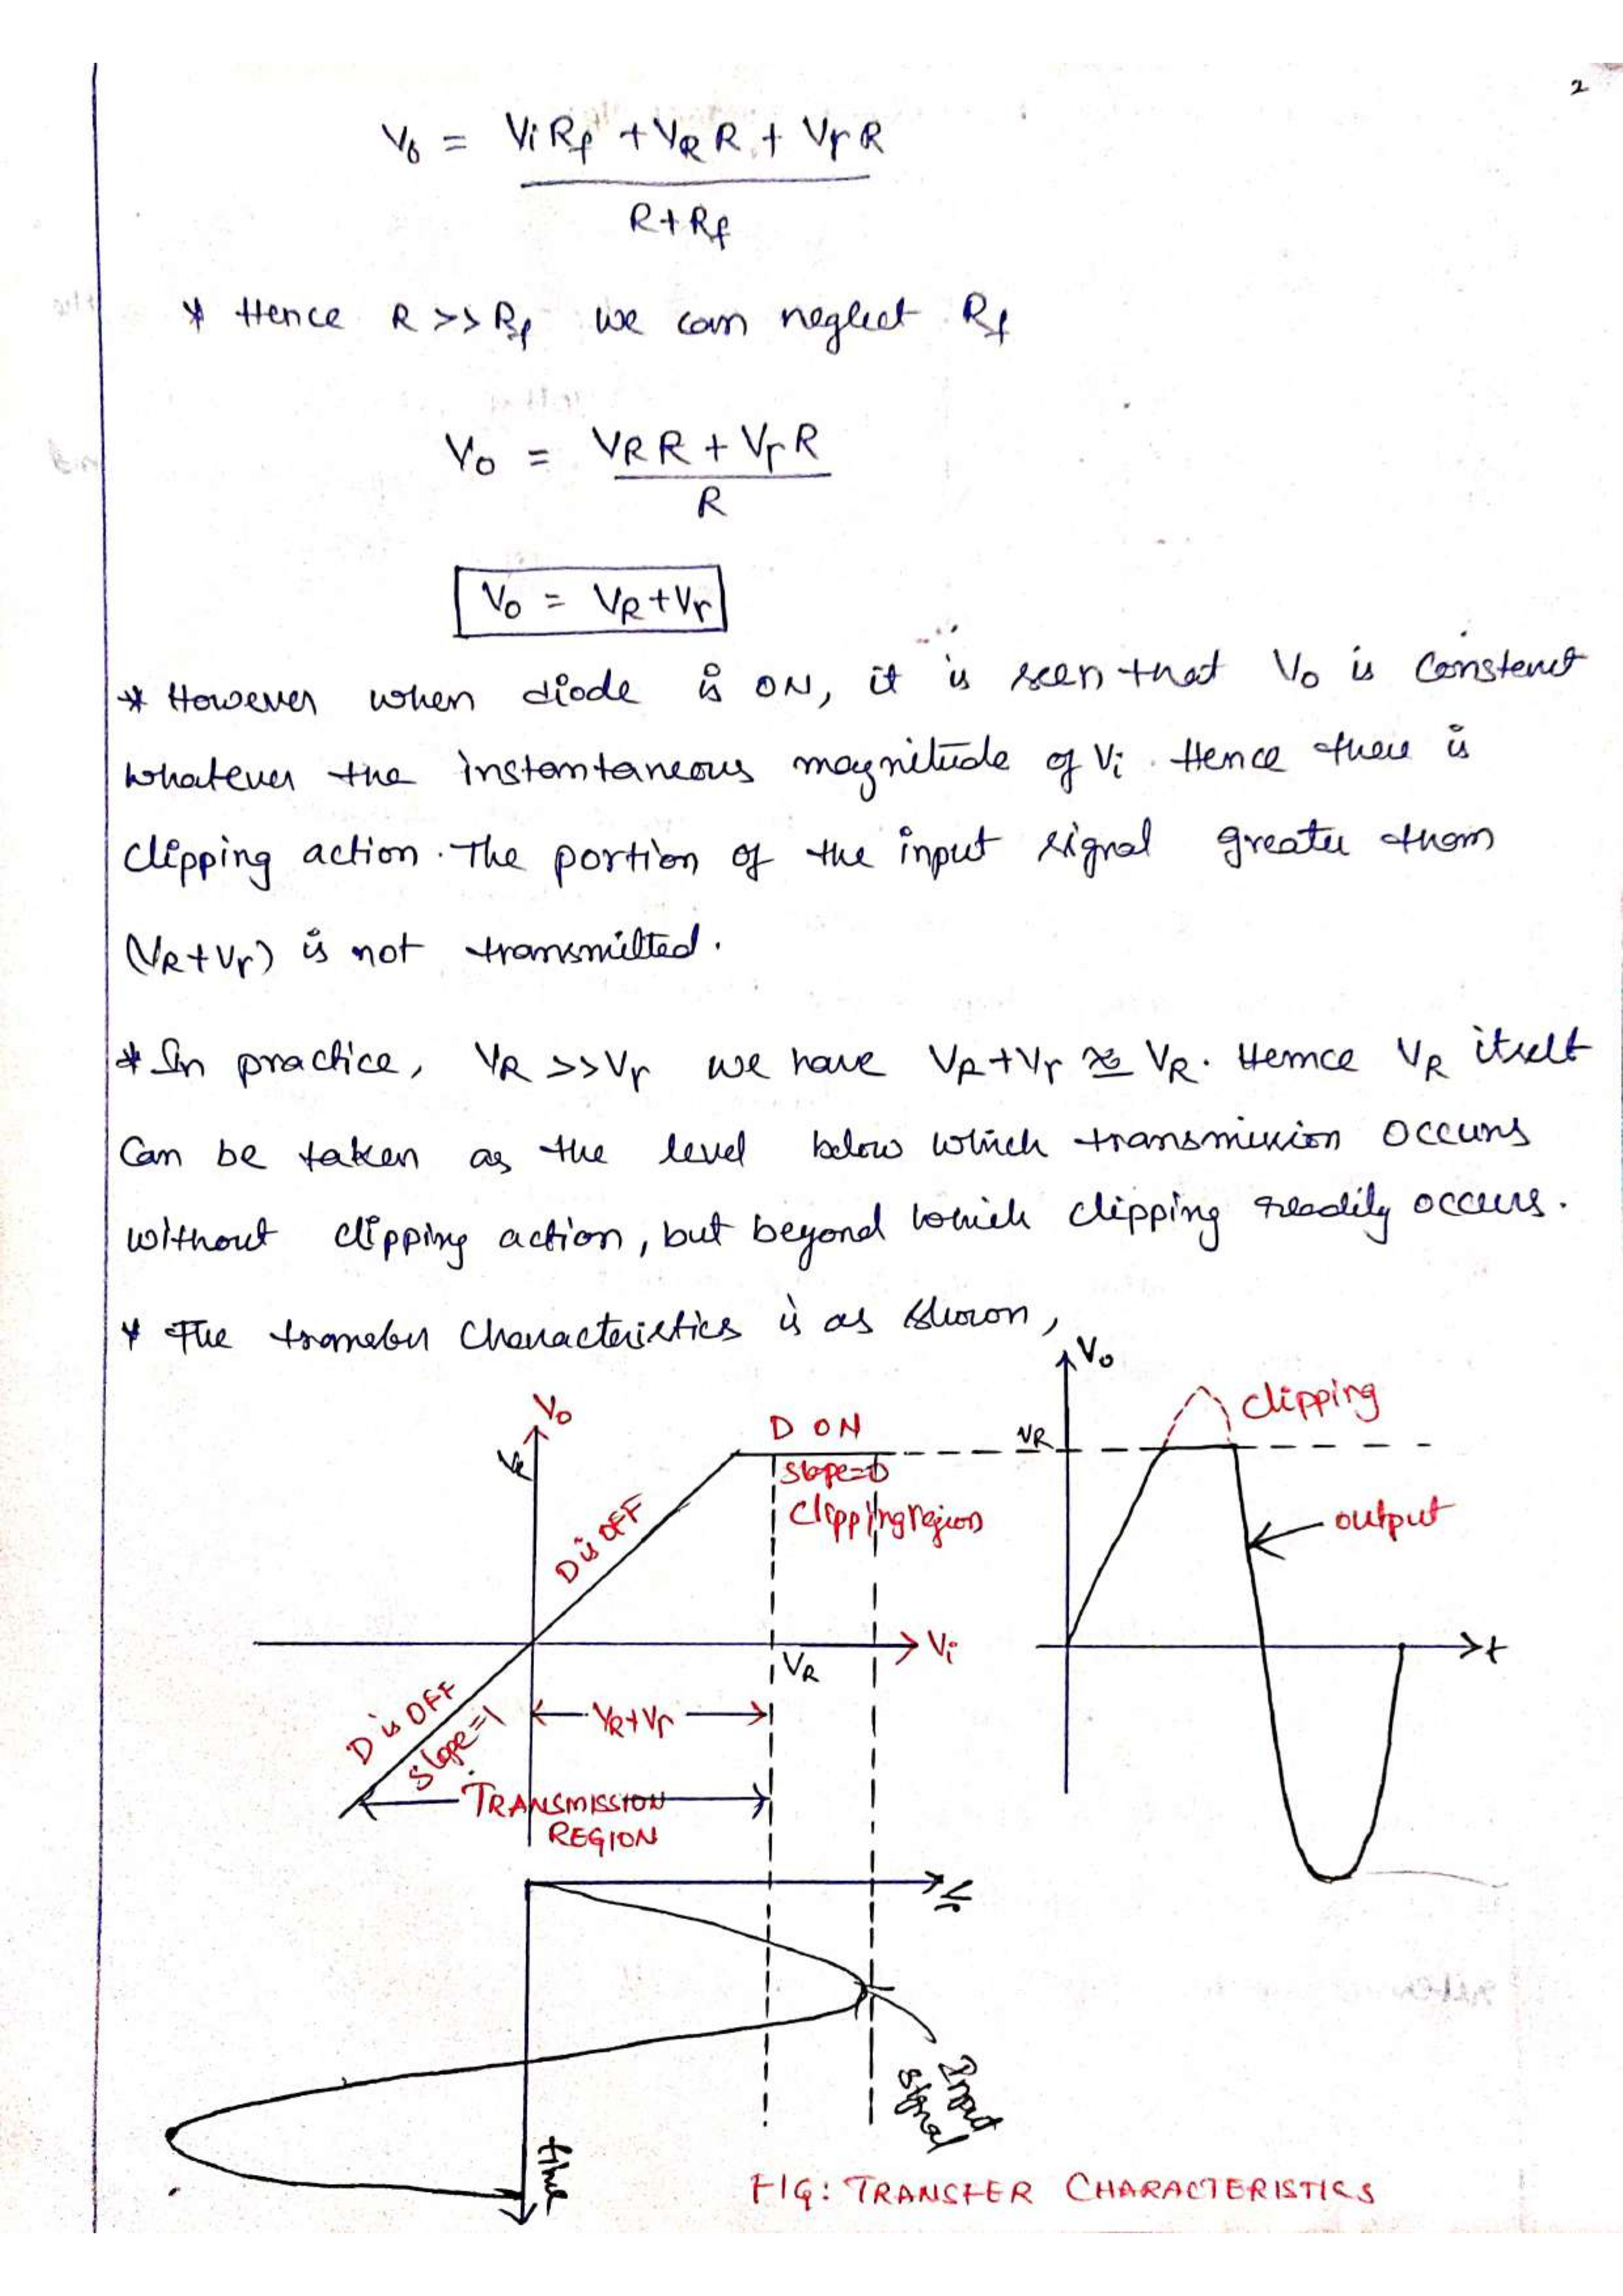 2
V₀ = ViRf + VR R + Vγ R
R + Rf
* Hence R >> Rf we can neglect Rf
V₀ = VR R + Vγ R
R
V₀ = VR + Vγ
* However when diode is ON, it is seen that V₀ is constant
whatever the instantaneous magnitude of Vi. Hence there is
clipping action. The portion of the input signal greater than
(VR + Vγ) is not transmitted.
* In practice, VR >> Vγ we have VR + Vγ ≅ VR. Hence VR itself
can be taken as the level below which transmission occurs
without clipping action, but beyond which clipping readily occurs.
* The transfer characteristics is as shown,
V₀
V₀
clipping
D ON
VR
VR
slope=0
Clipping region
D is OFF
output
Vi
t
VR
D is OFF
slope=1
VR+Vγ
TRANSMISSION
REGION
Vi
Input
signal
time
FIG: TRANSFER CHARACTERISTICS